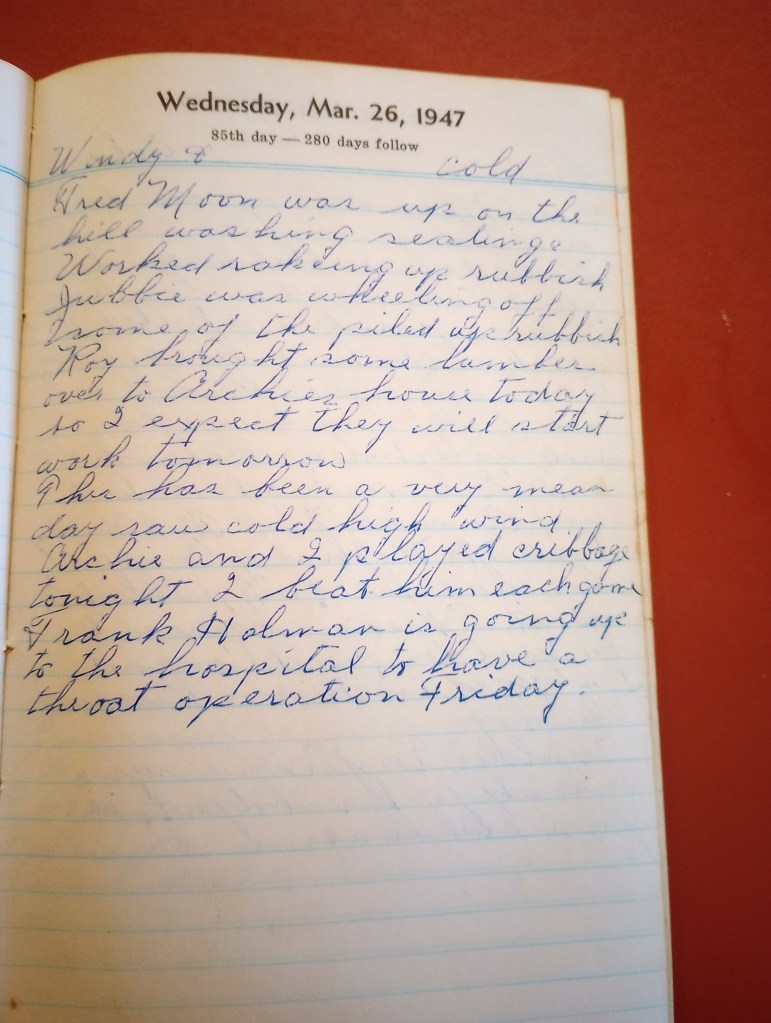 Wednesday, Mar. 26, 1947
85th day — 280 days follow
Windy & cold
Fred Moon was up on the
hill washing sealings
Worked rakeing up rubbish
Jubbie was wheeling off
some of the piled up rubbish
Roy brought some lumber
over to Archies house today
so I expect they will start
work tomorrow
This has been a very mean
day raw cold high wind
Archie and I played cribbage
tonight I beat him each game
Frank Holman is going up
to the hospital to have a
throat operation Friday.